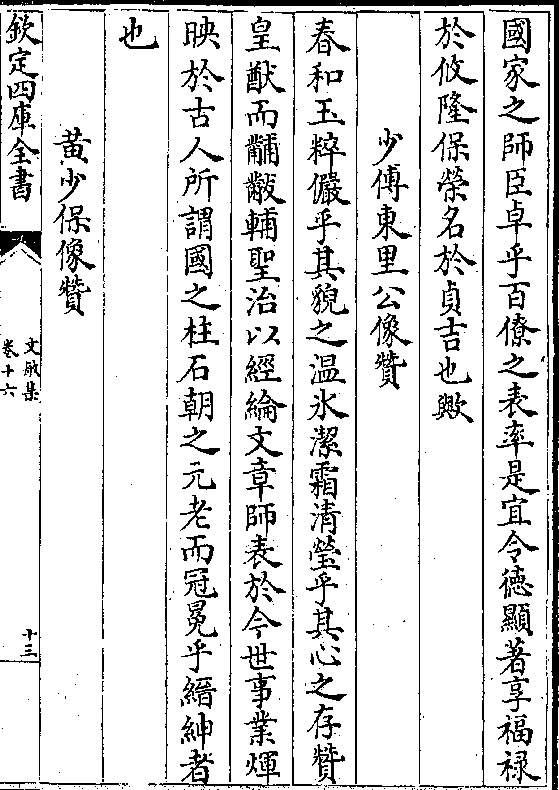 國家之師臣卓乎百僚之表率是宜令徳顯著享福禄
於攸隆保榮名於貞吉也歟
少傅東里公像贊
春和玉粹儼乎其貌之温氷潔霜清瑩乎其心之存贊
皇猷而黼黻輔聖治以經綸文章師表於今世事業煇
映於古人所謂國之柱石朝之元老而冠冕乎縉紳者
也
黄少保像贊
欽定四庫全書
文敏集
卷十六
十三